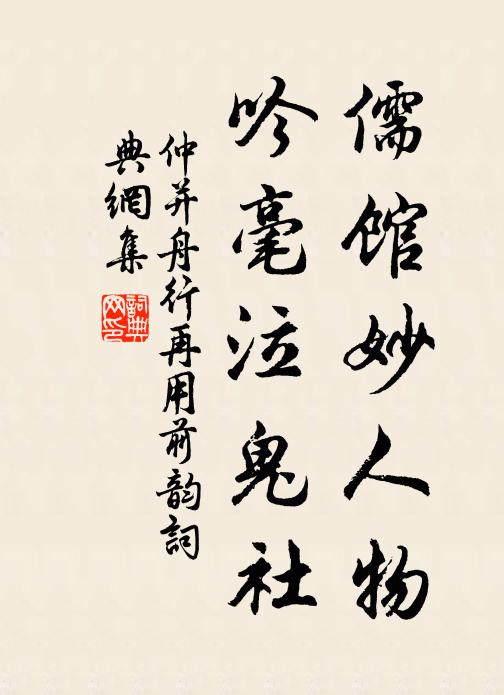 儒馆妙人物
吟毫泣鬼社
仲并舟行再用前韵詞
典網集
詞典
网印